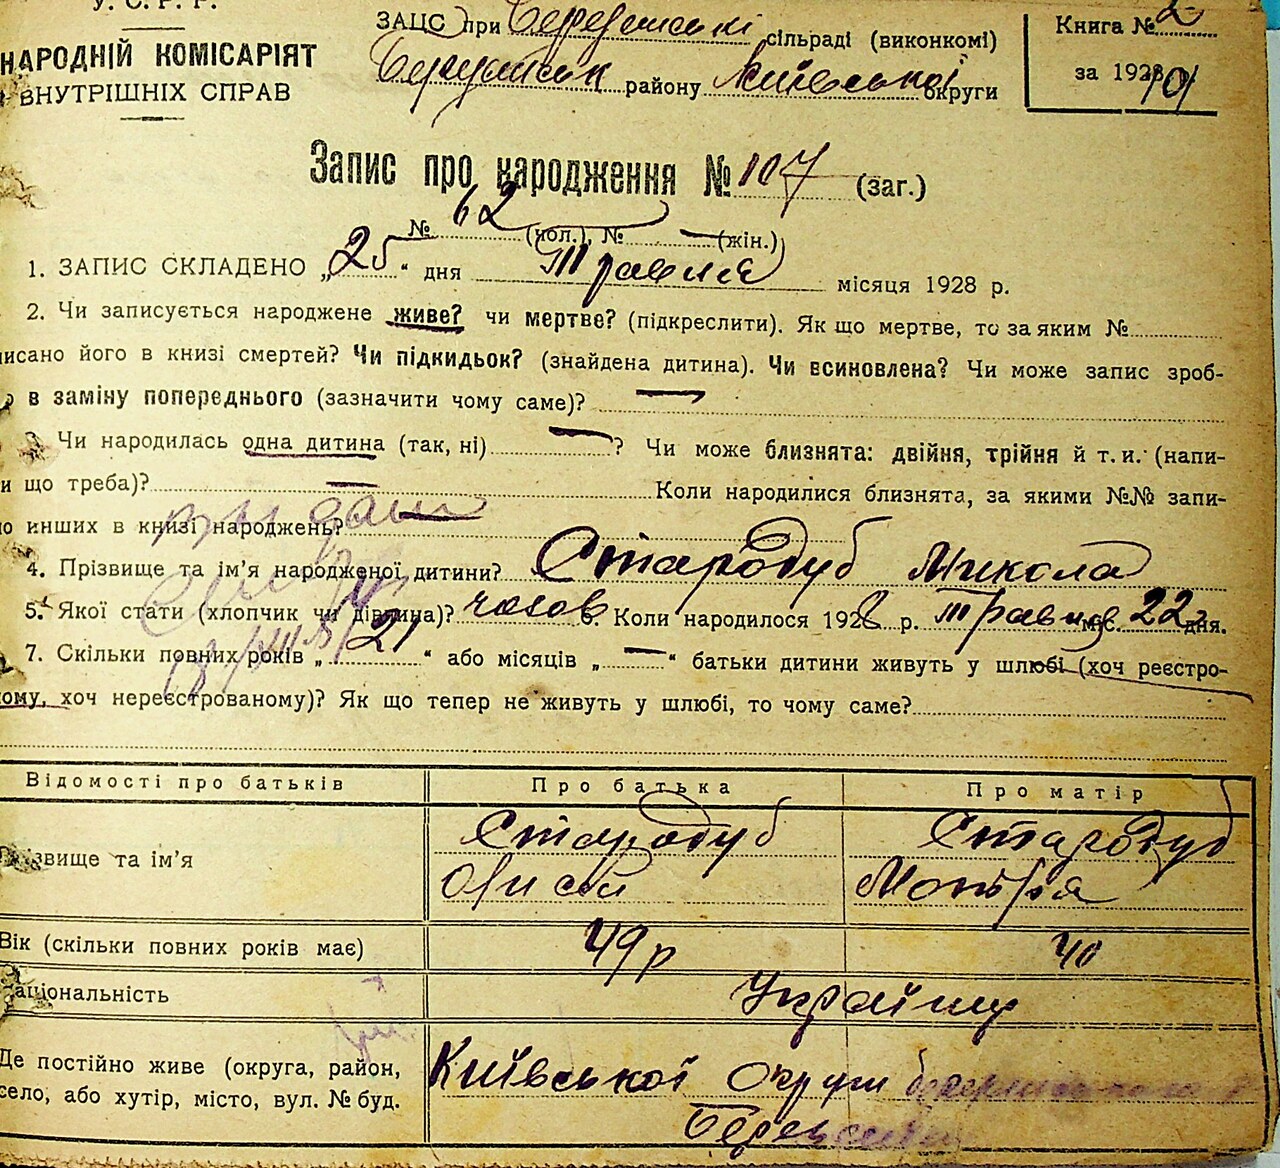 У. С. Р. Р.
НАРОДНІЙ КОМІСАРІЯТ
ВНУТРІШНІХ СПРАВ
ЗАЦС при сільраді (виконкомі)
району Київської округи
Книга № 2
за 1928
Запис про народження № 107 (заг.)
№ 62 (чол.), № — (жін.)
1. ЗАПИС СКЛАДЕНО „25“ дня Травня місяця 1928 р.
2. Чи записується народжене живе? чи мертве? (підкреслити). Як що мертве, то за яким №
писано його в книзі смертей? Чи підкидьок? (знайдена дитина). Чи всиновлена? Чи може запис зроб-
в заміну попереднього (зазначити чому саме)? —
3. Чи народилась одна дитина (так, ні) — ? Чи може близнята: двійня, трійня й т. и. (напи-
и що треба)? — Коли народилися близнята, за якими №№ запи-
о инших в книзі народжень? —
4. Прізвище та ім'я народженої дитини? Стародуб Микола
5. Якої стати (хлопчик чи дівчина)? чолов 6. Коли народилося 1928 р. Травня міс. 22 дня.
7. Скільки повних років „21“ або місяців „—“ батьки дитини живуть у шлюбі (хоч реєстро-
ому, хоч нереєстрованому)? Як що тепер не живуть у шлюбі, то чому саме?
Відомості про батьків Про батька Про матір
Прізвище та ім'я Стародуб Стародуб
Мотря
Вік (скільки повних років має) 49 р 40
Національність Українці
Де постійно живе (округа, район, Київської Округи
село, або хутір, місто, вул. № буд.